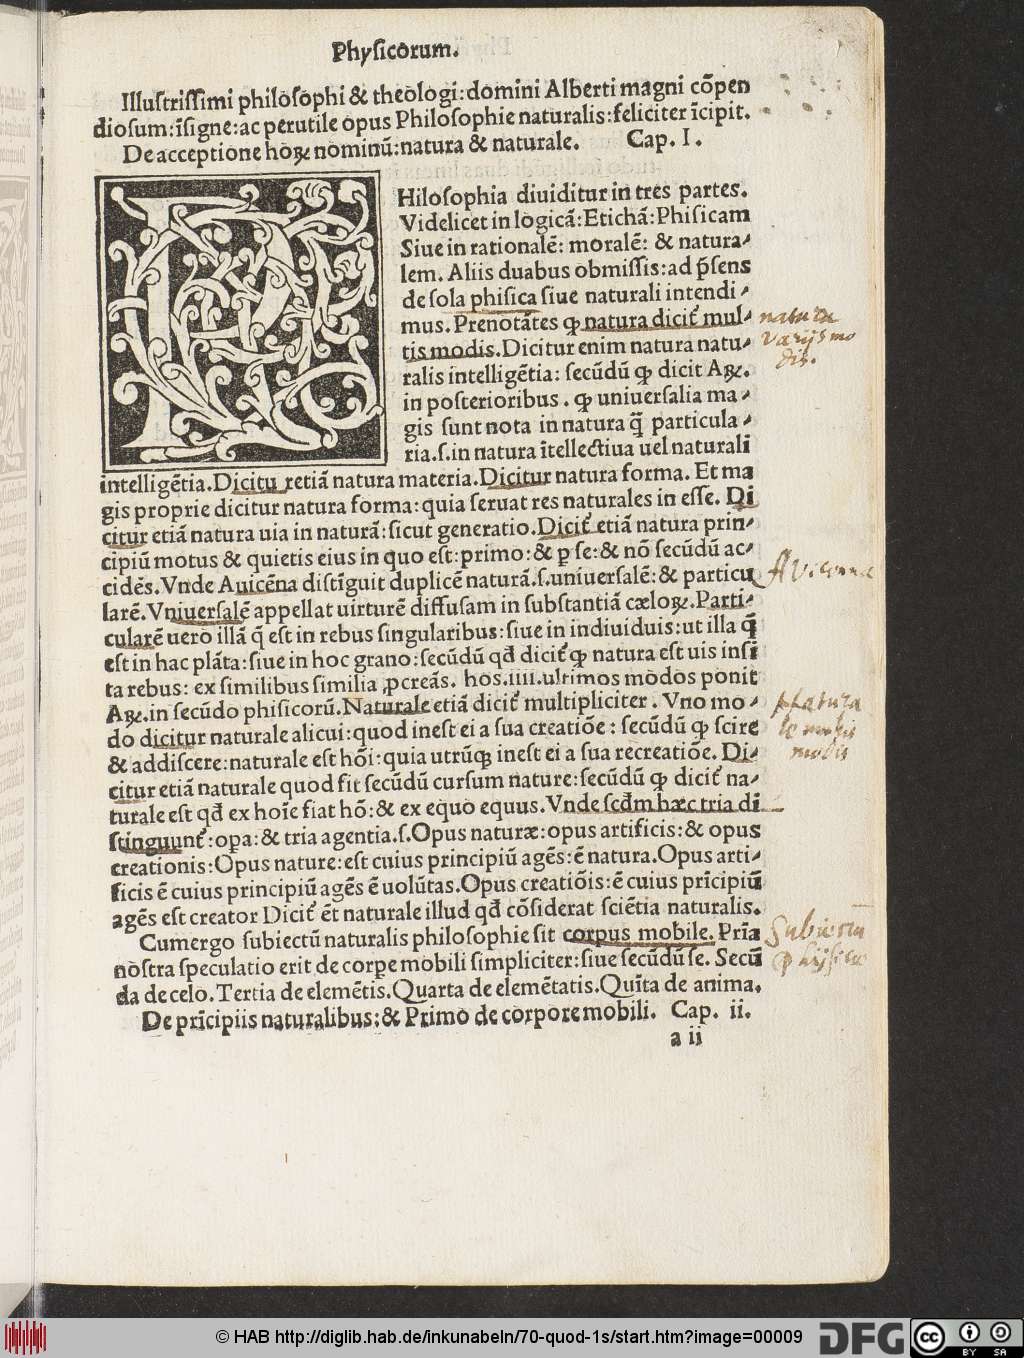 Phyſicorum.
Illuſtriſſimi philoſophi & theologi: domini Alberti magni cōpen
dioſum: īſigne: ac perutile opus Philoſophie naturalis: feliciter īcipit.
De acceptione hoꝝ nominū: natura & naturale. Cap. I.
PHiloſophia diuiditur in tres partes.
Videlicet in logicā: Etichā: Phiſicam
Siue in rationalē: moralē: & natura-
lem. Aliis duabus obmiſſis: ad p̄ſens
de ſola phiſica ſiue naturali intendi-
mus. Prenotātes ꝙ natura dicit᷑ mul-
tis modis. Dicitur enim natura natu-
ralis intelligētia: ſecūdū ꝙ dicit Aꝝ.
in poſterioribus. ꝙ uniuerſalia ma-
gis ſunt nota in natura q̄ particula-
ria. ſ. in natura ītellectiua uel naturali
intelligētia. Dicitu retiā natura materia. Dicitur natura forma. Et ma
gis proprie dicitur natura forma: quia ſeruat res naturales in eſſe. Di
citur etiā natura uia in naturā: ſicut generatio. Dicit᷑ etiā natura prin-
cipiū motus & quietis eius in quo eſt: primo: & ꝑ ſe: & nō ſecūdū ac-
cidēs. Vnde Auicēna diſtīguit duplicē naturā. ſ. uniuerſalē: & particu
larē. Vniuerſalē appellat uirturē diffuſam in ſubſtantiā cæloꝝ. Parti-
cularē uero illā q̄ eſt in rebus ſingularibus: ſiue in indiuiduis: ut illa q̄
eſt in hac plāta: ſiue in hoc grano: ſecūdū qđ dicit᷑ ꝙ natura eſt uis inſi
ta rebus: ex ſimilibus ſimilia ꝓcreās. hos. iiii. ultimos modos ponit
Aꝝ. in ſecūdo phiſicorū. Naturale etiā dicit᷑ multipliciter. Vno mo-
do dicitur naturale alicui: quod ineſt ei a ſua creatiōe: ſecūdū ꝙ ſcire
& addiſcere: naturale eſt hōi: quia utrūqꝫ ineſt ei a ſua recreatiōe. Di-
citur etiā naturale quod fit ſecūdū curſum nature: ſecūdū ꝙ dicit᷑ na-
turale eſt qđ ex hoīe fiat hō: & ex equo equus. Vnde ſcđm hæc tria di
ſtinguunt᷑: oꝑa: & tria agentia. ſ. Opus naturæ: opus artificis: & opus
creationis: Opus nature: eſt cuius principiū agēs: ē natura. Opus arti-
ficis ē cuius principiū agēs ē uolūtas. Opus creatiōis: ē cuius prīcipiū
agēs eſt creator Dicit᷑ ēt naturale illud qđ cōſiderat ſciētia naturalis.
Cumergo ſubiectū naturalis philoſophie ſit corpus mobile. Prīa
noſtra ſpeculatio erit de corpe mobili ſimpliciter: ſiue ſecūdū ſe. Secū
da de celo. Tertia de elemētis. Quarta de elemētatis. Quīta de anima.
De prīcipiis naturalibus: & Primo de corpore mobili. Cap. ii.
a ii
natura
varijs mo
dis.
Avicenna
Natura
le multis
modis
Subiectū
physicæ
© HAB http://diglib.hab.de/inkunabeln/70-quod-1s/start.htm?image=00009
DFG
cc BY SA